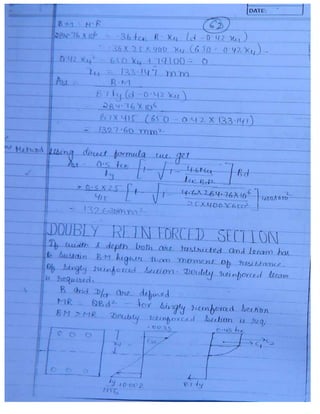 DATE:
62
B.M = M.R
284.76×10⁶ = .36 fck B. xu (d - 0.42 xu)
= .36 × 25 × 400 xu (650 - 0.42 xu)
0.42 xu² - 650 xu + 79100 = 0
xu = 133.147 mm
Ast = B.M
.87 fy (d - 0.42 xu)
= 284.76×10⁶
.87×415 (650 - 0.42 × 133.147)
= 1327.60 mm²
Method using direct formula we get
Ast = 0.5 fck [1 - √1 - 4.6 Mu] Bd
fy
fck Bd²
= 0.5×25 [1 - √1 - 4.6×284.76×10⁶] 400×650
415
25×400×650²
= 1326 mm²
DOUBLY REINFORCED SECTION
If width & depth both are restricted and beam has
to sustain B.M higher than moment of resistance
of singly reinforced section. Doubly reinforced beam
is required.
B and D/d are defined
MR = QBd² - for singly reinforced section
BM > MR Doubly reinforced section is req.
.0035
0.45 fck
xu
.87 fy